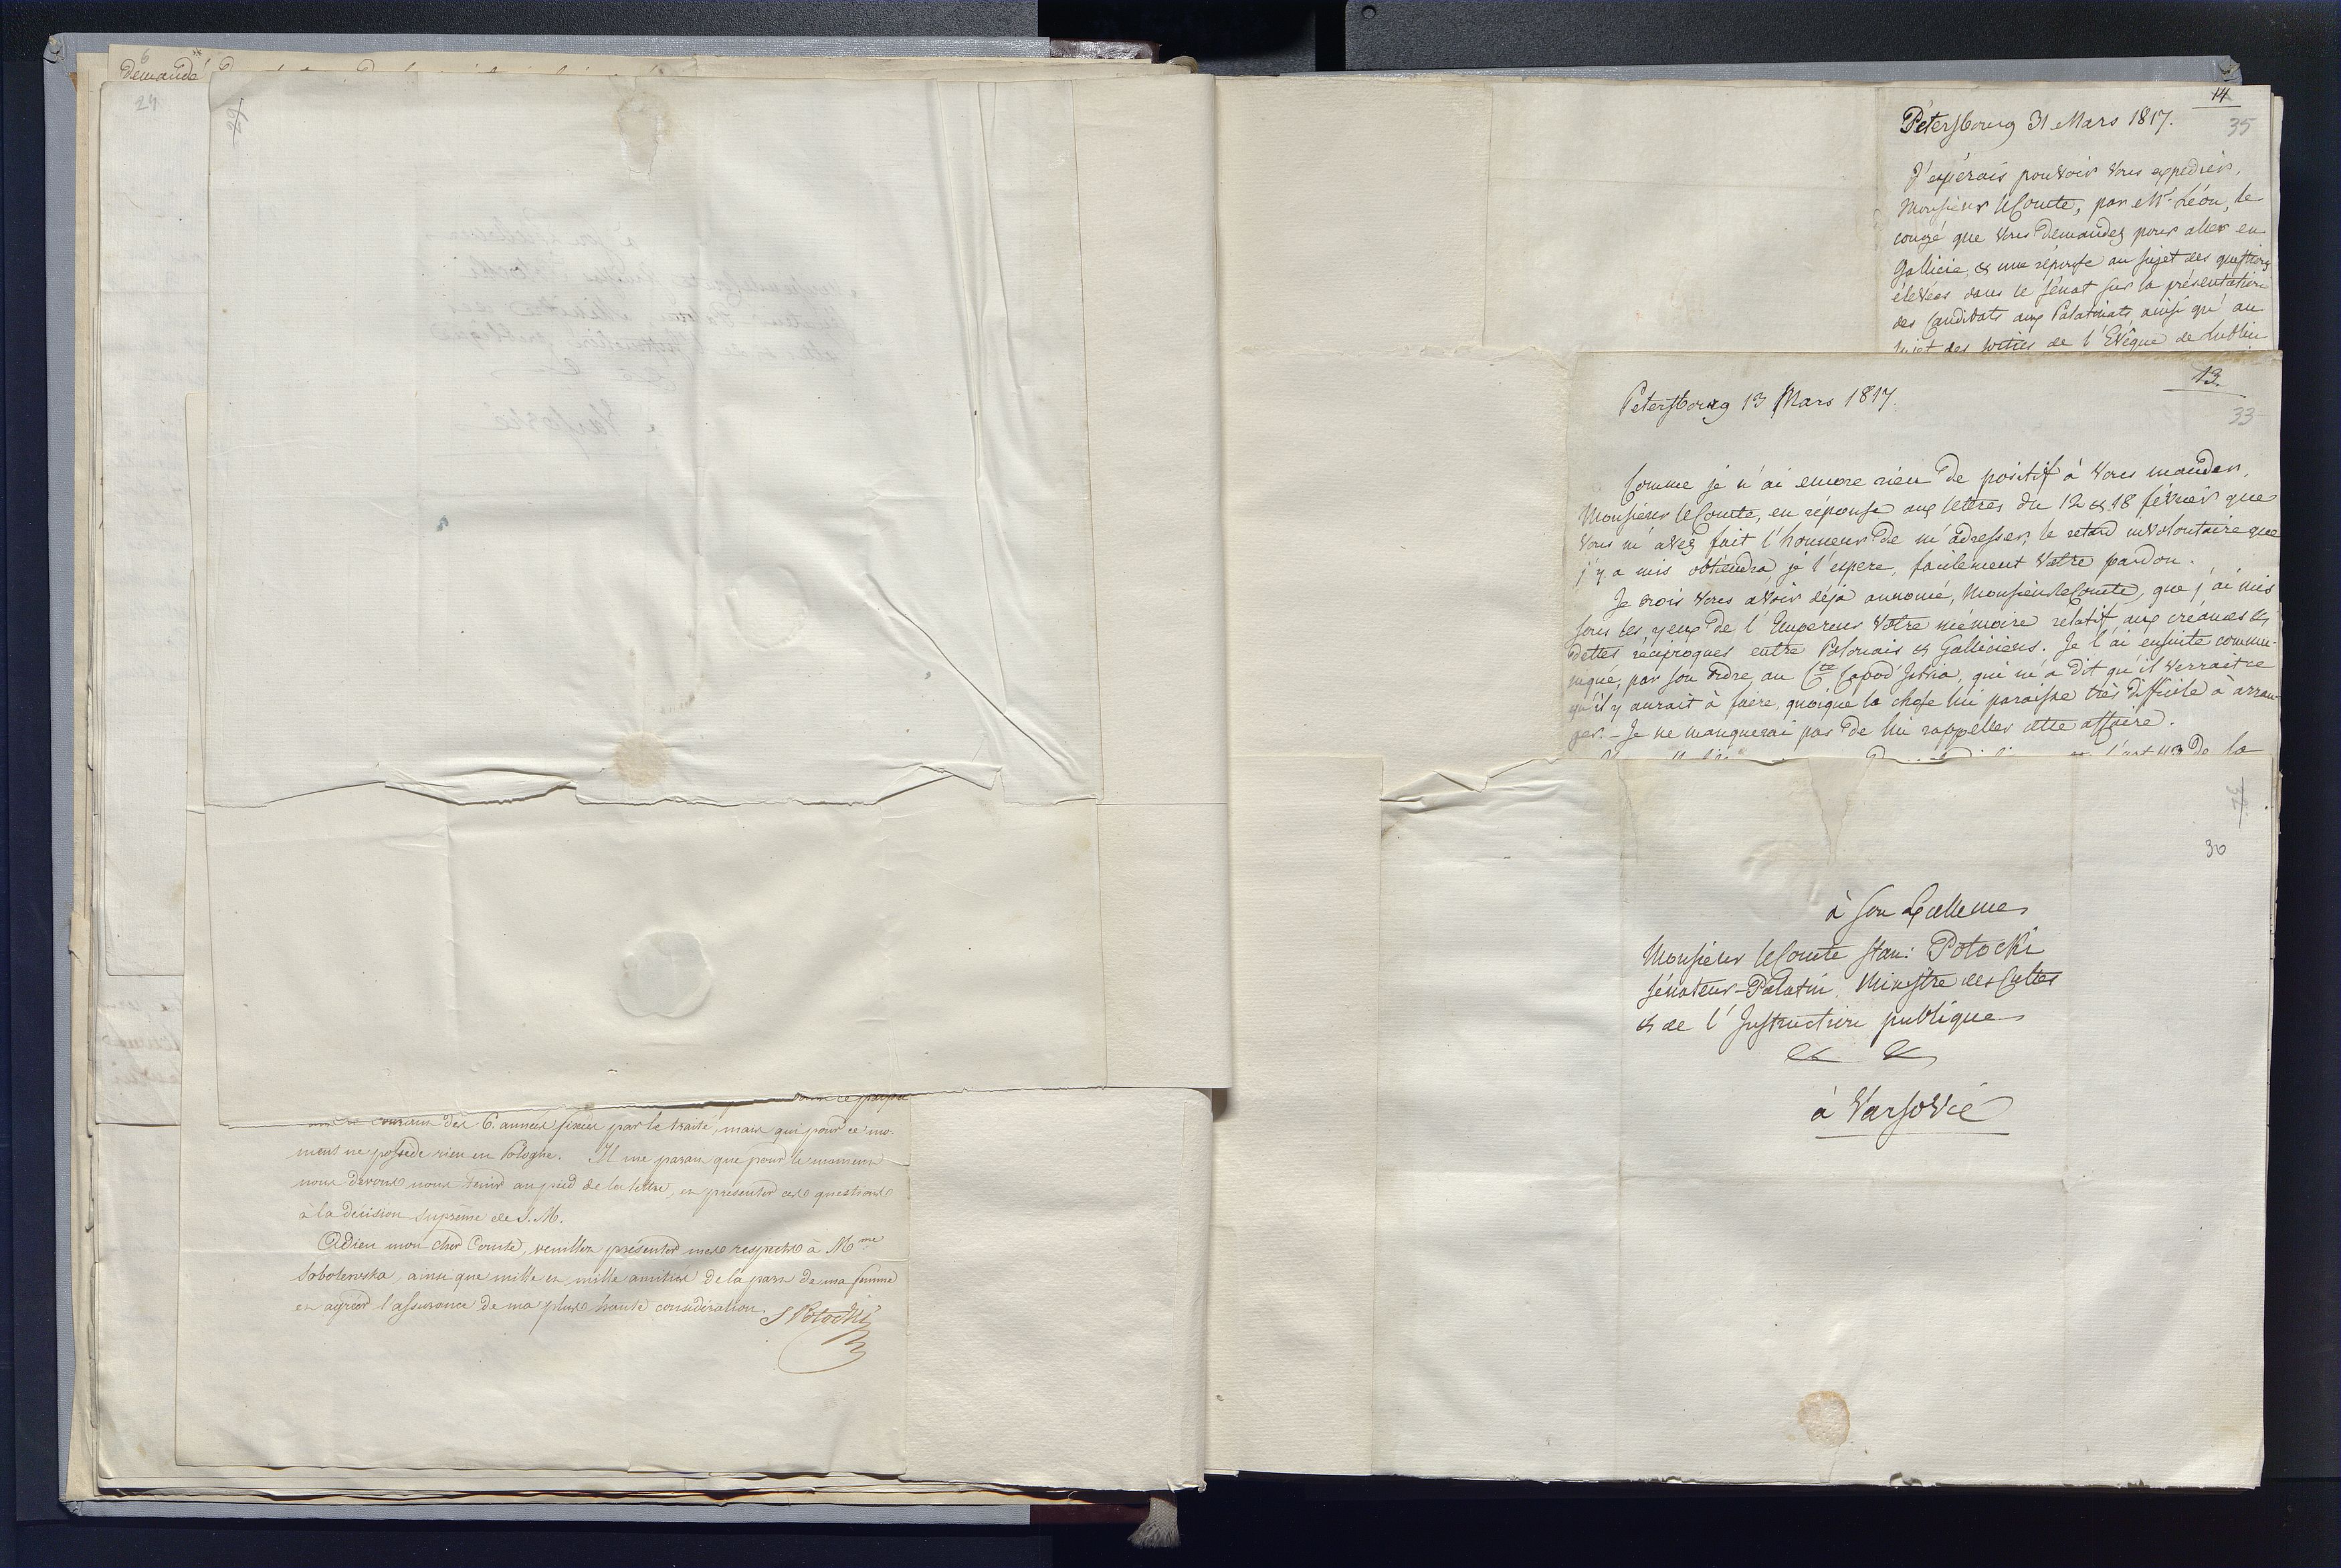 6
Demandé
24
dans ce
courant des 6. années fixées par le traité, mais qui pour ce mo-
ment ne possède rien en Pologne. Il me parait que pour le moment
nous devons nous tenir au pied de la lettre, et présenter ces questions
à la décision suprême de S. M.
Adieu mon cher Comte, veuillez présenter mes respects à Mme
Sobolewska, ainsi que mille et mille amitiés de la part de ma femme
et agréer l'assurance de ma plus haute considération.
S Potocki
14
35
Pétersbourg 31 Mars 1817.
J'espérais pouvoir vous expedier,
Monsieur le Comte, par Mr Léon, le
congé que vous demandez pour aller en
Gallicie, & une réponse au sujet des questions
élevées dans le Sénat sur la présentation
des Candidats aux Palatinats, ainsi qu'au
sujet des de l'Evêque de Lublin
13.
33
Petersbourg 13 Mars 1817.
Comme je n'ai encore rien de positif à vous mander,
Monsieur le Comte, en réponse aux lettres du 12 & 18 février que
vous m'avez fait l'honneur de m'adresser, le retard involontaire que
j'y a mis obtiendra, je l'espere, facilement votre pardon.
Je crois vous avoir déja annoncé, Monsieur le Comte, que j'ai mis
sous les yeux de l'Empereur votre mémoire relatif aux créances &
dettes réciproques entre Polonais & Galliciens. Je l'ai ensuite commu-
niqué, par son ordre, au Cte Capod'Istria, qui m'a dit qu'il verrait ce
qu'il y aurait à faire, quoique la chose lui paraisse très difficile à arran-
ger. - Je ne manquerai pas de lui rappeller cette affaire.
l'art 43 de la
30
à Son Excellence
Monsieur le Comte Stan: Potocki
Sénateur-Palatin, Ministre des Cultes
& de l'Instruction publique
& &
à Varsovie